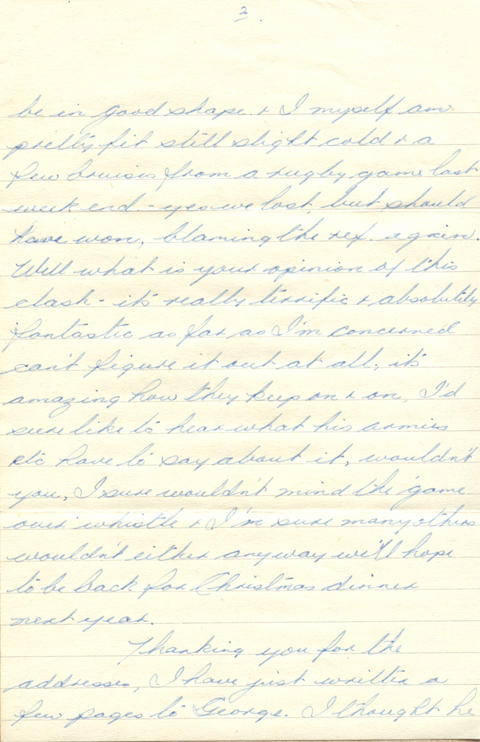 2.
be in good shape & I myself am
pretty fit still slight cold & a
few bruises from a rugby game last
week end - yes we lost, but should
have won, blaming the ref. again.
Well what is your opinion of this
clash - it's really terrific & absolutely
fantastic as far as I'm concerned
can't figure it out at all, it's
amazing how they keep on & on, I'd
sure like to hear what his armies
etc have to say about it, wouldn't
you, I sure wouldn't mind the "game
over" whistle & I'm sure many others
wouldn't either anyway we'll hope
to be back for Christmas dinner
next year.
Thanking you for the
addresses, I have just written a
few pages to George. I thought he